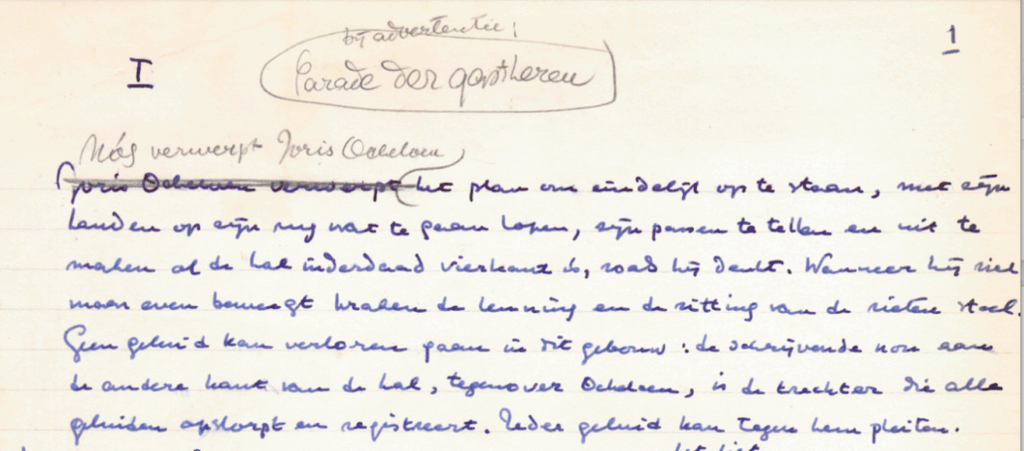 1
bij advertentie:
I
Parade der gastheren
Nóg verwerpt Joris Ockeloen
Joris Ockeloen verwerpt het plan om eindelijk op te staan, met zijn
handen op zijn rug wat te gaan lopen, zijn passen te tellen en uit te
maken of de hal inderdaad vierkant is, zoals hij denkt. Wanneer hij zich
maar even beweegt kraken de leuning en de zitting van de rieten stoel.
Geen geluid kan verloren gaan in dit gebouw: de schrijvende non aan
de andere kant van de hal, tegenover Ockeloen, is de trechter die alle
geluiden opslorpt en registreert. Ieder geluid kan tegen hem pleiten.